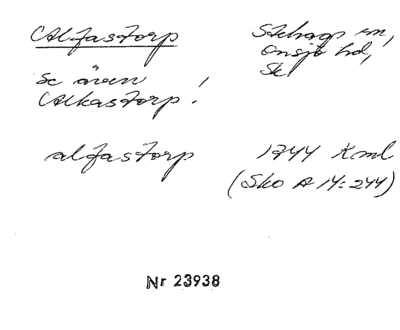 Alfastorp Stehags sn,
Onsjö hd,
Sk
Se även !
Alkastorp.
alfastorp 1744 Kml
(Sko A 14:244)
Nr 23938